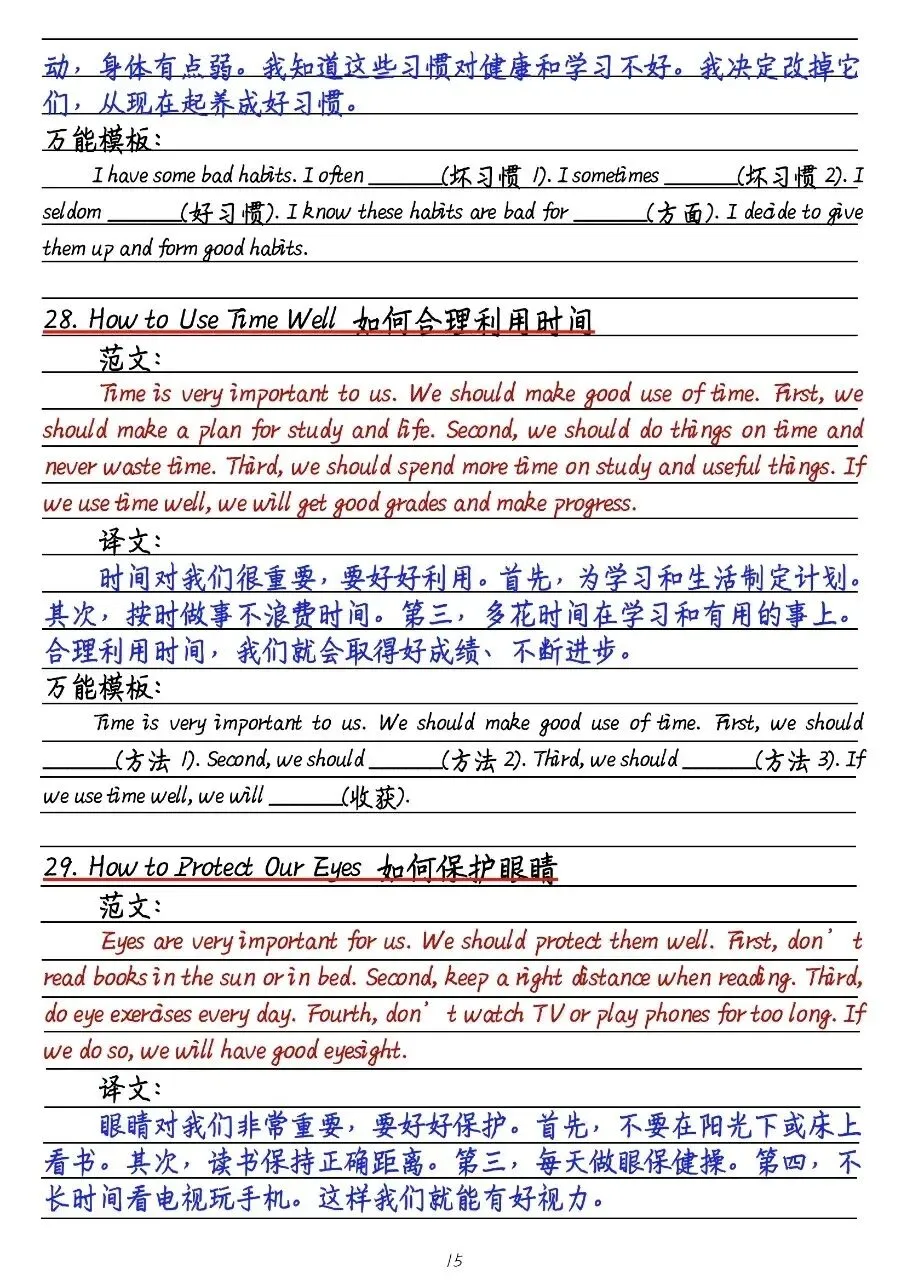 动，身体有点弱。我知道这些习惯对健康和学习不好。我决定改掉它
们，从现在起养成好习惯。
万能模板：
I have some bad habits. I often ______(坏习惯 1). I sometimes ______(坏习惯 2). I
seldom ______(好习惯). I know these habits are bad for ______(方面). I decide to give
them up and form good habits.
28. How to Use Time Well 如何合理利用时间
范文：
Time is very important to us. We should make good use of time. First, we
should make a plan for study and life. Second, we should do things on time and
never waste time. Third, we should spend more time on study and useful things. If
we use time well, we will get good grades and make progress.
译文：
时间对我们很重要，要好好利用。首先，为学习和生活制定计划。
其次，按时做事不浪费时间。第三，多花时间在学习和有用的事上。
合理利用时间，我们就会取得好成绩、不断进步。
万能模板：
Time is very important to us. We should make good use of time. First, we should
______(方法 1). Second, we should ______(方法 2). Third, we should ______(方法 3). If
we use time well, we will ______(收获).
29. How to Protect Our Eyes 如何保护眼睛
范文：
Eyes are very important for us. We should protect them well. First, don’t
read books in the sun or in bed. Second, keep a right distance when reading. Third,
do eye exercises every day. Fourth, don’t watch TV or play phones for too long. If
we do so, we will have good eyesight.
译文：
眼睛对我们非常重要，要好好保护。首先，不要在阳光下或床上
看书。其次，读书保持正确距离。第三，每天做眼保健操。第四，不
长时间看电视玩手机。这样我们就能有好视力。
15